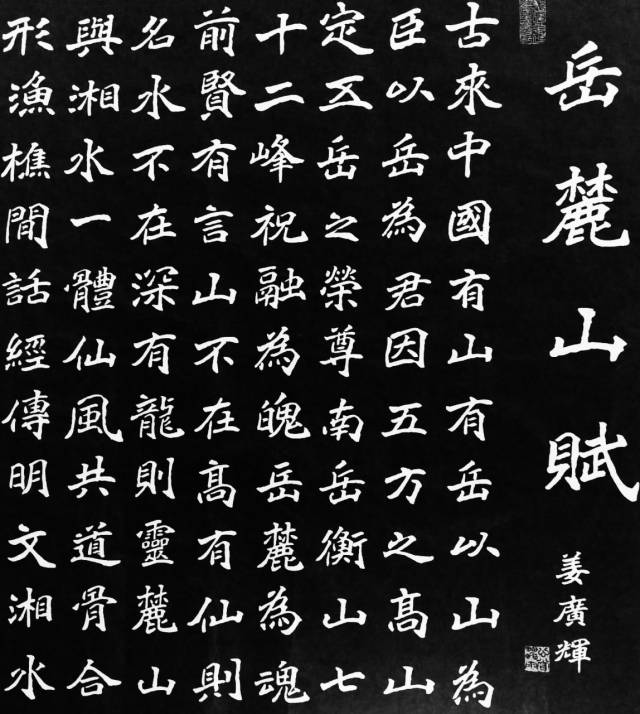 岳麓山賦
姜廣輝
古來中國有山有岳以山為
臣以岳為君因五方之高山
定五岳之榮尊南岳衡山七
十二峰祝融為魄岳麓為魂
前賢有言山不在高有仙則
名水不在深有龍則靈麓山
與湘水一體仙風共道骨合
形漁樵閒話經傳明文湘水